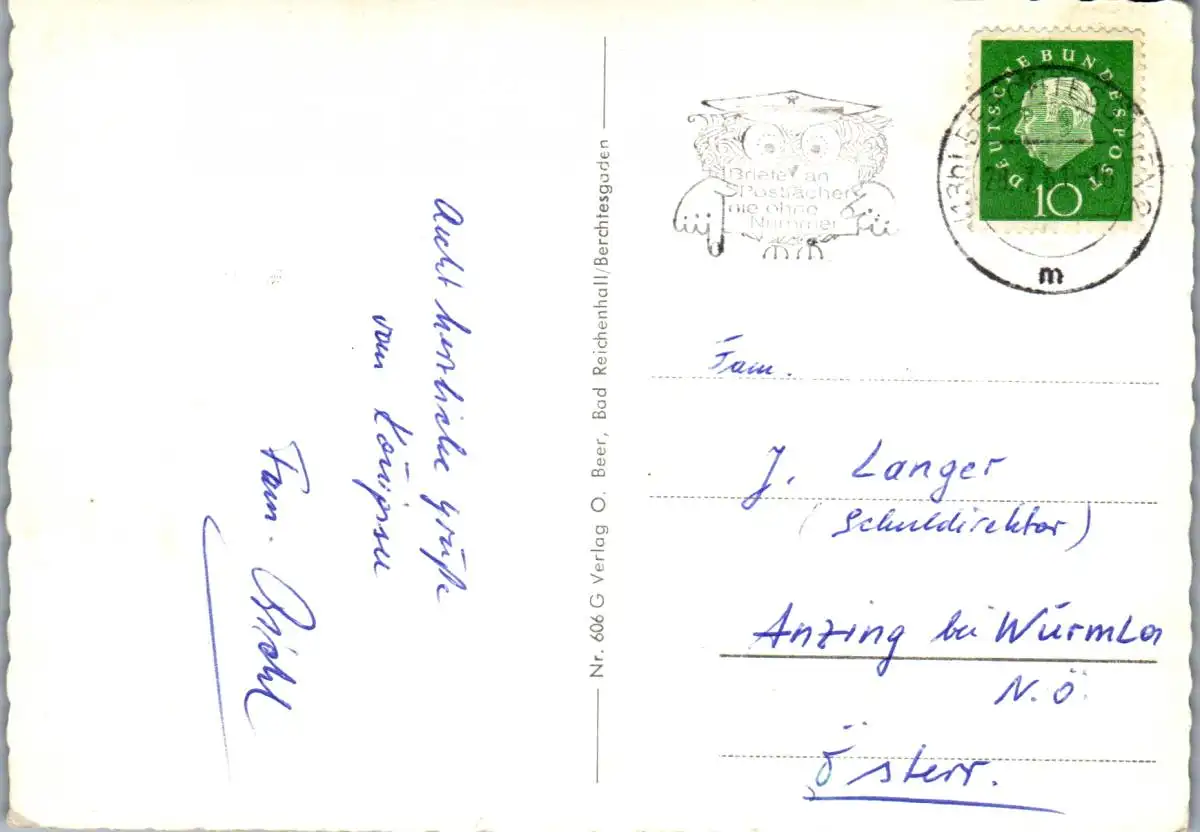 Recht herzliche Grüße
vom Königssee
Fam. Bröhl
Nr. 606 G Verlag O. Beer, Bad Reichenhall/Berchtesgaden
Briefe an
Postfächer
nie ohne
Nummer
DEUTSCHE BUNDESPOST
10
m
Fam.
J. Langer
(Schuldirektor)
Anzing bei Würmla
N.Ö.
Österr.